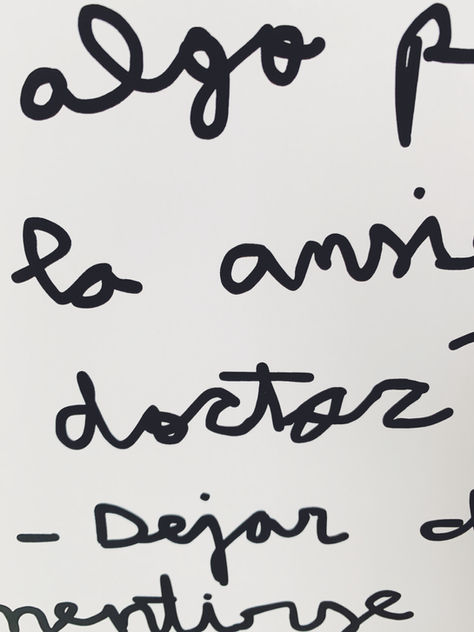 algo p
la ansi
doctor
- Dejar d
mentirse